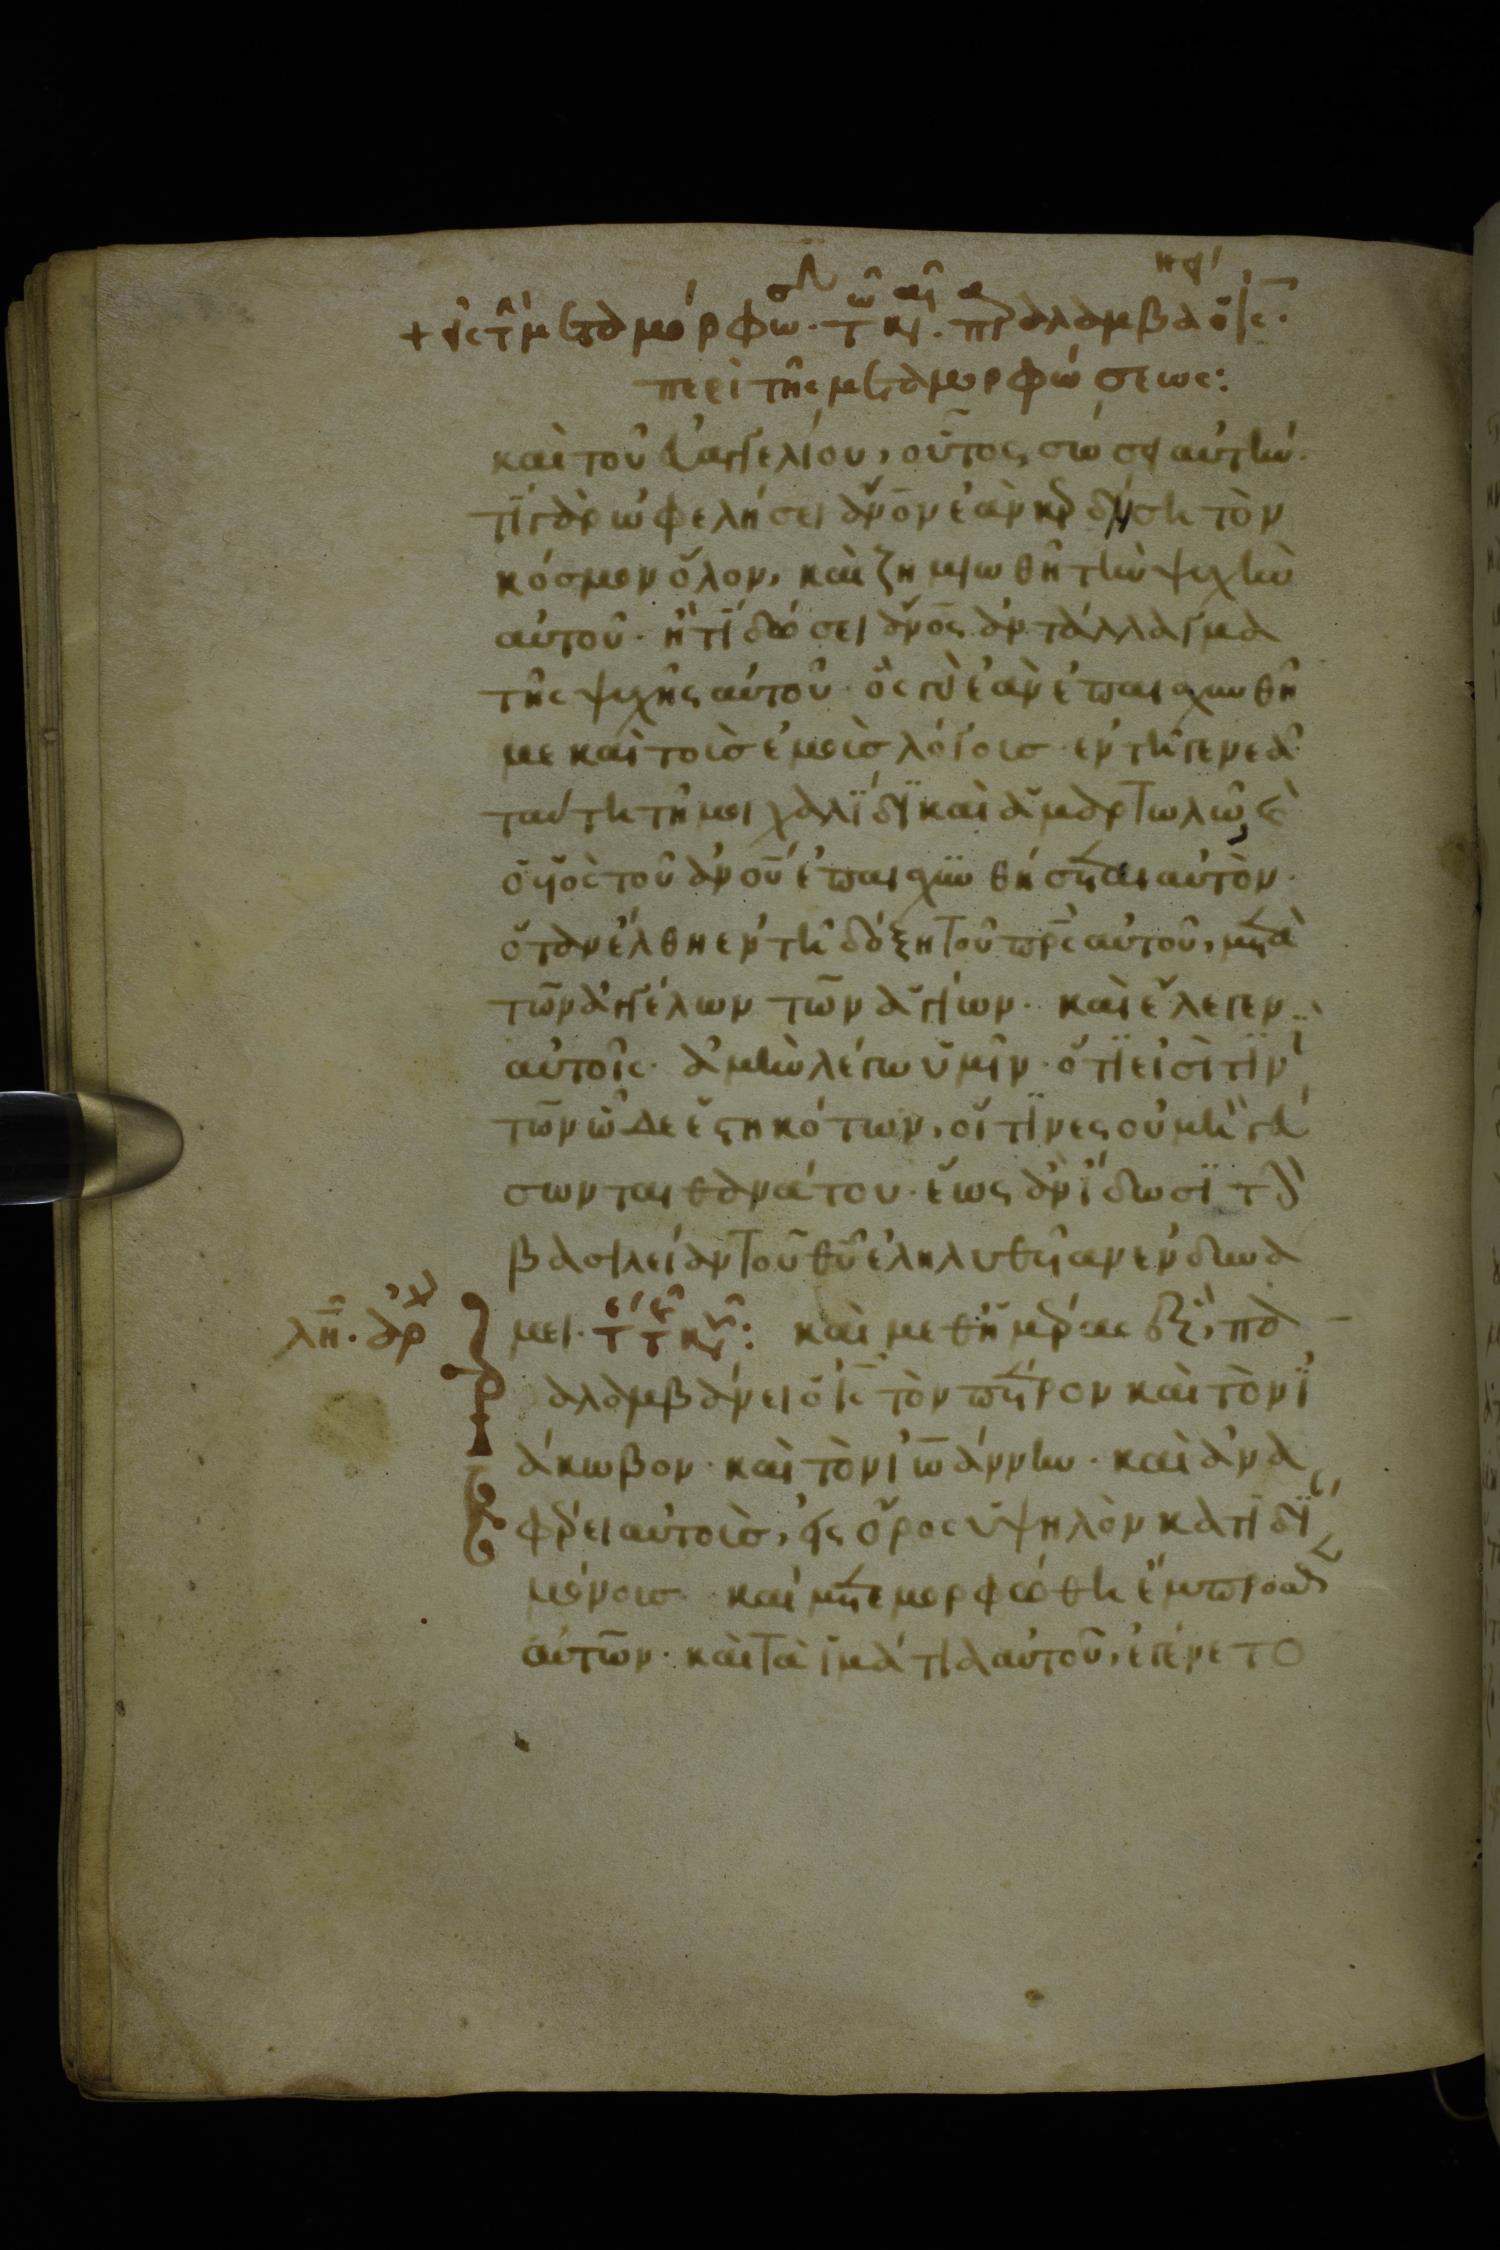 + εἰς τ μεταμόρφω. τ κυ. πρλαμβα ὁ ις.
περὶ τῆς μεταμορφώσεως:
καὶ τοῦ εὐαγγελίου, οὗτος σώσει αὐτήν.
τί γὰρ ὠφελήσει ἄνον ἐὰν κερδήση τὸν
κόσμον ὅλον, καὶ ζημιωθῆ τὴν ψυχὴν
αὐτοῦ. ἢ τί δώσει ἄνος ἀντάλλαγμα
τῆς ψυχῆς αὐτοῦ. ὃς γὰρ ἐὰν ἐπαισχυνθῆ
με καὶ τοὺς ἐμοὺς λόγους ἐν τῆ γενεᾶ
ταύτη τῆ μοιχαλίδι καὶ ἁμαρτωλῶ, καὶ
ὁ υἱὸς τοῦ ἀνου ἐπαισχυνθήσεται αὐτὸν.
ὅταν ἔλθη ἐν τῆ δόξη τοῦ πρς αὐτοῦ, μετὰ
τῶν ἀγγέλων τῶν ἁγίων. καὶ ἔλεγεν
αὐτοῖς. ἀμὴν λέγω ὑμῖν. ὅτι εἰσί τιν
τῶν ὧδε ἑστηκότων, οἵτινες οὐ μὴ γεύ
σωνται θανάτου. ἕως ἂν ἴδωσι τὴν
βασιλείαν τοῦ θυ ἐληλυθυῖαν ἐν δυνά
λη. ἀρχ μει. τ τ κυ: καὶ μεθ ἡμέρας ἓξ, πα
ραλαμβάνει ὁ ις τὸν πέτρον καὶ τὸν ἰ
άκωβον. καὶ τὸν ἰωάννην. καὶ ἀνα
φέρει αὐτοὺς, εἰς ὄρος ὑψηλὸν κατ ἰδί
μόνους. καὶ μετεμορφώθη ἔμπροσθεν
αὐτῶν. καὶ τὰ ἱμάτια αὐτοῦ, ἐγένετο